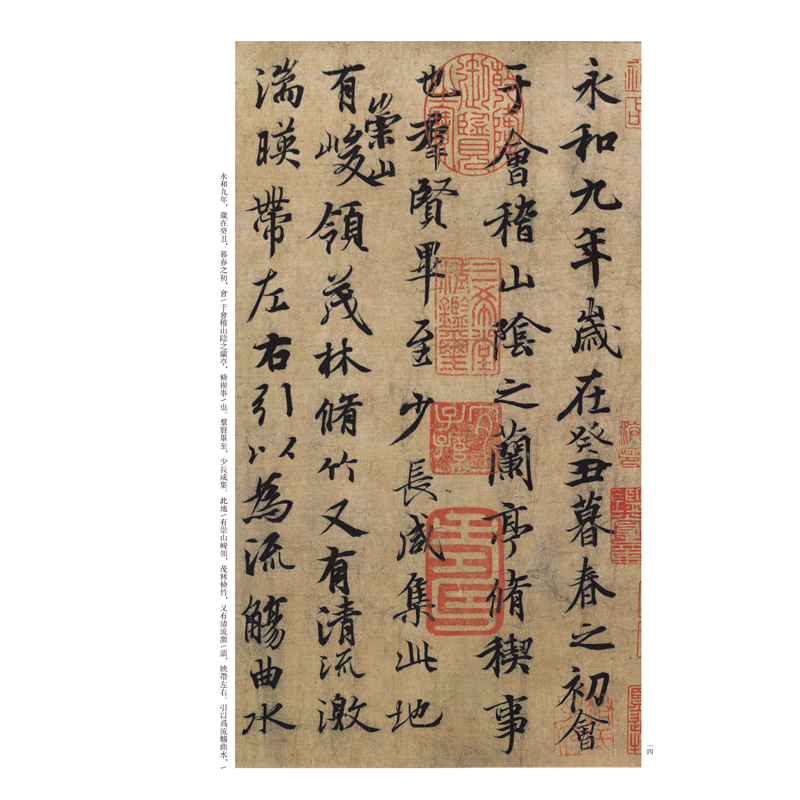 永和九年歲在癸丑暮春之初會
于會稽山陰之蘭亭脩稧事
也羣賢畢至少長咸集此地
有崇山峻領茂林脩竹又有清流激
湍暎帶左右引以為流觴曲水
永和九年，歲在癸丑，暮春之初，會\于會稽山陰之蘭亭，脩稧事\也。羣賢畢至，少長咸集。此地\有崇山峻領，茂林脩竹，又有清流激\湍，暎帶左右。引以爲流觴曲水，\
一四